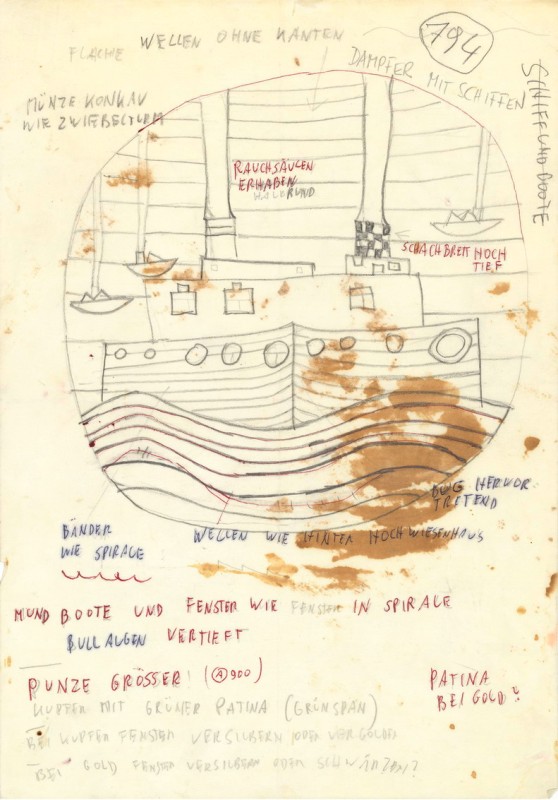 794
FLÄCHE WELLEN OHNE KANTEN
DAMPFER MIT SCHIFFEN
SCHIFF UND BOOTE
MÜNZE KONKAV
WIE ZWIEBELTURM
RAUCHSÄULEN
ERHABEN
HALBRUND
SCHACHBRETT HOCH
TIEF
BUG HERVOR
TRETEND
BÄNDER
WIE SPIRALE
WELLEN WIE HINTEN HOCHWIESENHAUS
MUND BOOTE UND FENSTER WIE FENSTER IN SPIRALE
BULLAUGEN VERTIEFT
PUNZE GRÖSSER! (A 900)
PATINA
BEI GOLD?
KUPFER MIT GRÜNER PATINA (GRÜNSPAN)
BEI KUPFER FENSTER VERSILBERN ODER VERGOLDEN
BEI GOLD FENSTER VERSILBERN ODER